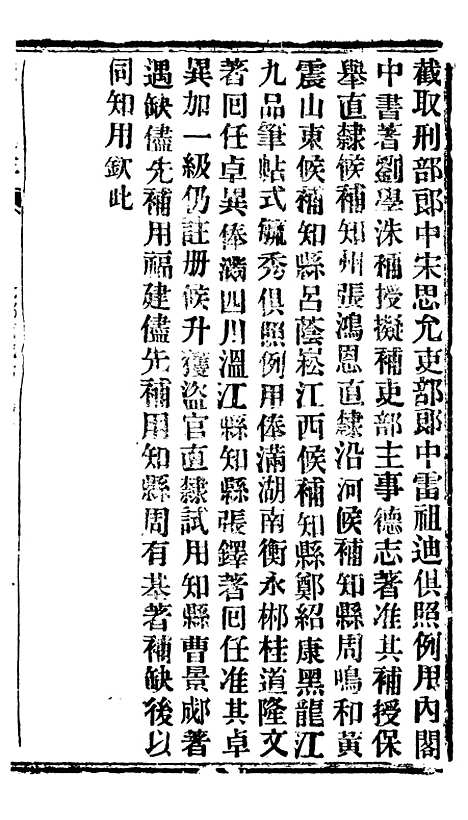 截取刑部郎中宋思允吏部郎中雷祖迪俱照例用內閣
中書著劉學洙補授擬補吏部主事德志著准其補授保
舉直隸候補知州張鴻恩直隸沿河候補知縣周鳴和黃
震山東候補知縣呂蔭崧江西候補知縣鄭紹康黑龍江
九品筆帖式毓秀俱照例用俸滿湖南衡永郴桂道隆文
著回任卓異俸滿四川溫江縣知縣張鐸著回任准其卓
異加一級仍註册候升獲盜官直隸試用知縣曹景郕著
遇缺儘先補用福建儘先補用知縣周有基著補缺後以
同知用欽此